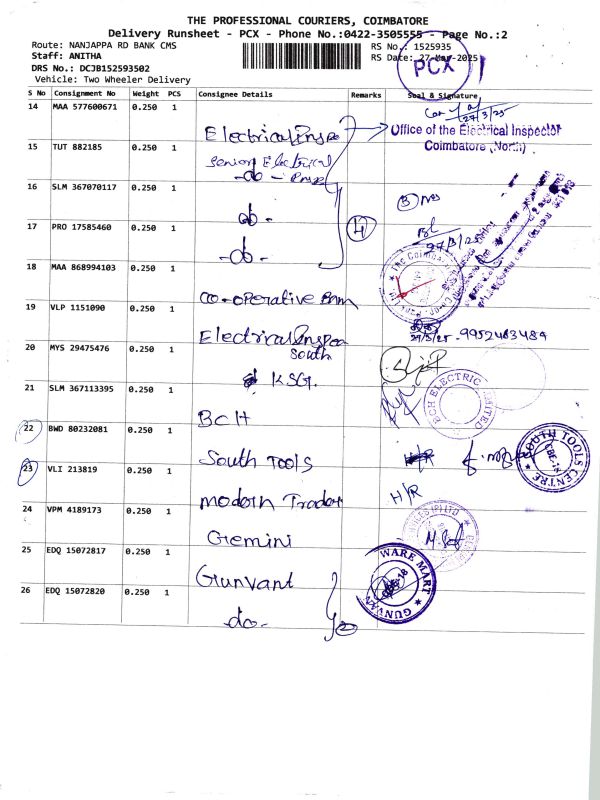 THE PROFESSIONAL COURIERS, COIMBATORE
Delivery Runsheet - PCX - Phone No.:0422-3505555 - Page No.:2
Route: NANJAPPA RD BANK CMS
RS No.: 1525935
Staff: ANITHA
RS Date: 27-Mar-2025
PCX
DRS No.: DCJB152593502
Vehicle: Two Wheeler Delivery
S No Consignment No Weight PCS Consignee Details Remarks Seal & Signature
14 MAA 577600671 0.250 1
27/3/25
Electrical Inspe
Office of the Electrical Inspector
Coimbatore (North)
15 TUT 882185 0.250 1
Senior Electrical
-do- Inspe
16 SLM 367070117 0.250 1
-do-
17 PRO 17585460 0.250 1
4
27/3/25
-do-
18 MAA 868994103 0.250 1
The Coimbatore
Co-operative Ban
19 VLP 1151090 0.250 1
27/3/25. 9952463484
Electrical Inspec
South
20 MYS 29475476 0.250 1
KSG.
21 SLM 367113395 0.250 1
BCH ELECTRIC LIMITED
BCH
22 BWD 80232081 0.250 1
SOUTH TOOLS CENTRE
CBE-18
South Tools
H/R
23 VLI 213819 0.250 1
Modern Trader
H/R
24 VPM 4189173 0.250 1
Gemini
25 EDQ 15072817 0.250 1
GUNVANT WARE MART
CBE-18
Gunvant
26 EDQ 15072820 0.250 1
-do-
2